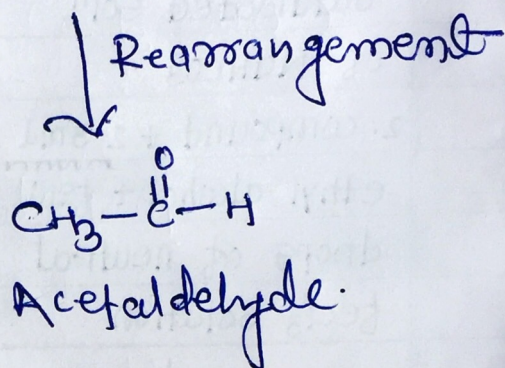 Rearrangement
O
CH3-C-H
Acetaldehyde.